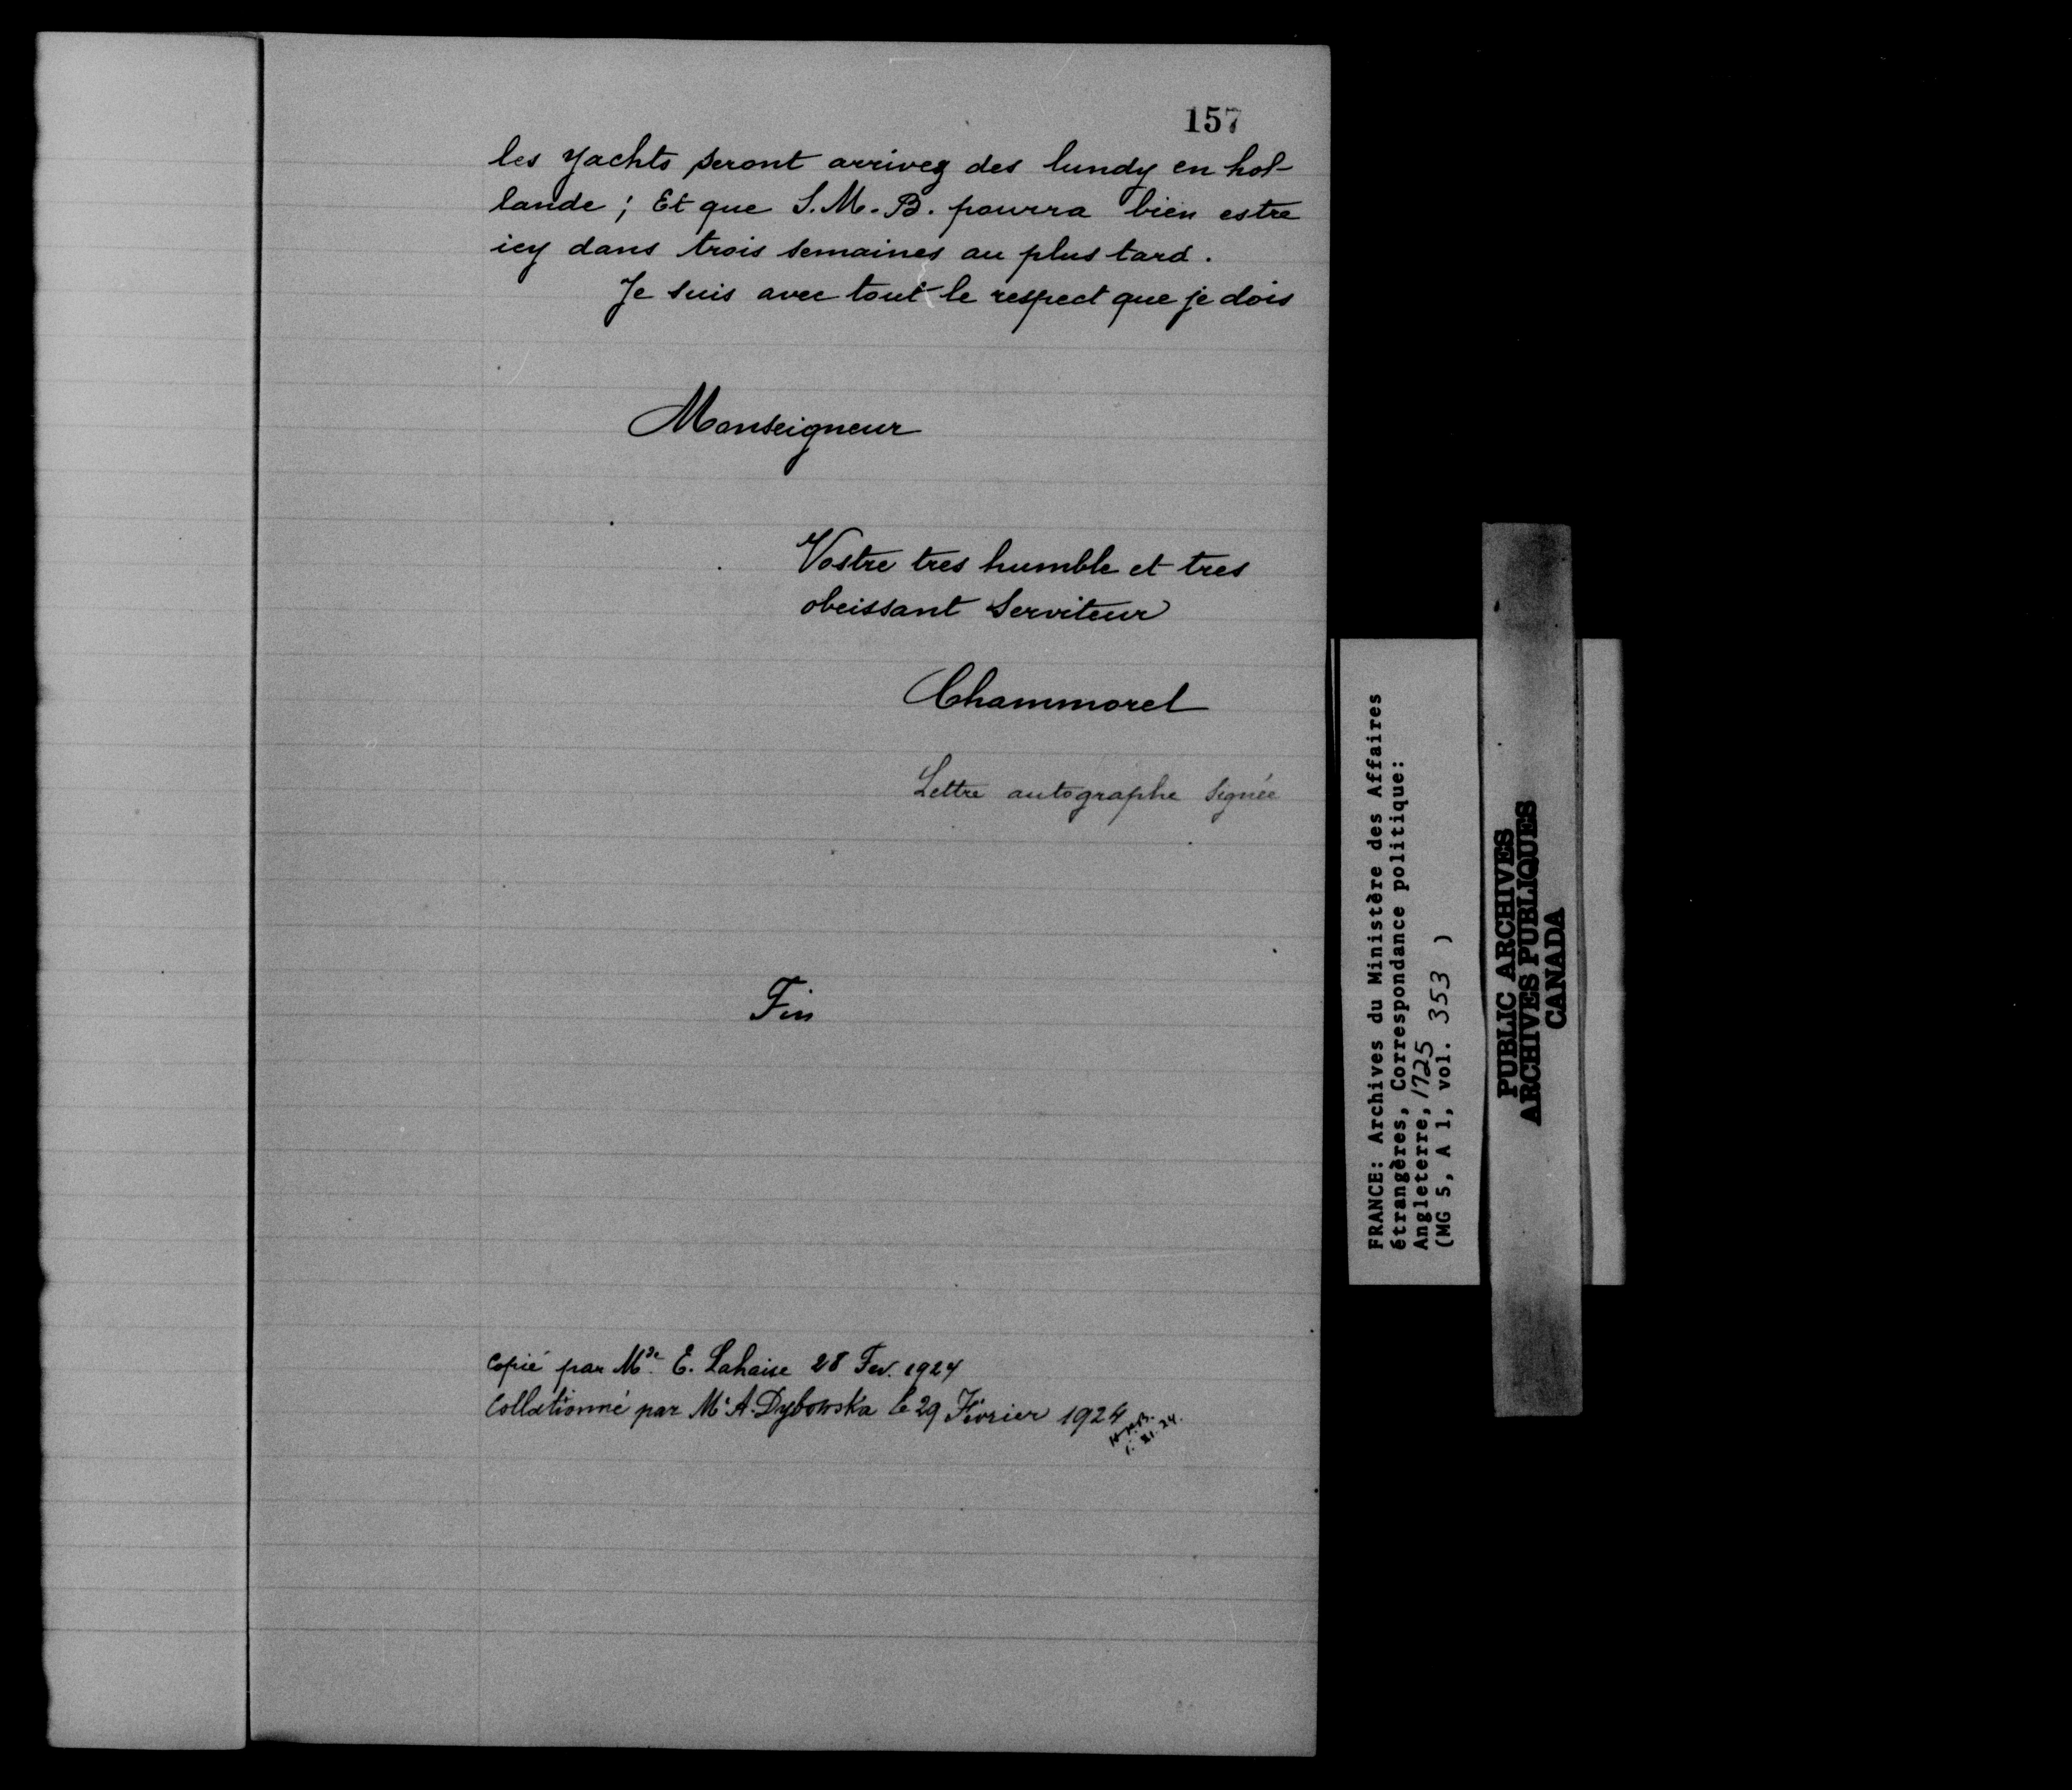 157
les yachts seront arrivez des lundy en hol-
lande ; Et que S. M. B. pourra bien estre
icy dans trois semaines au plus tard.
Je suis avec tout le respect que je dois
Monseigneur
Vostre tres humble et tres
obeissant Serviteur
Chammorel
Lettre autographe Signée
Fin
Copié par Mde E. Lahaise 28 Fev. 1924
Collationné par Me A. Dybowska le 29 Février 1924
FRANCE: Archives du Ministère des Affaires
étrangères, Correspondance politique:
Angleterre, 1725
(MG 5, A 1, vol. 353 )
PUBLIC ARCHIVES
ARCHIVES PUBLIQUES
CANADA